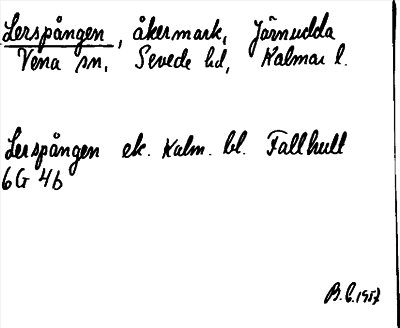 Lerspången, åkermark, Järnudda
Vena sn, Sevede hd, Kalmar l.
Lerspången ek. Kalm. bl. Fallhult
6G 4b
B.C. 1957